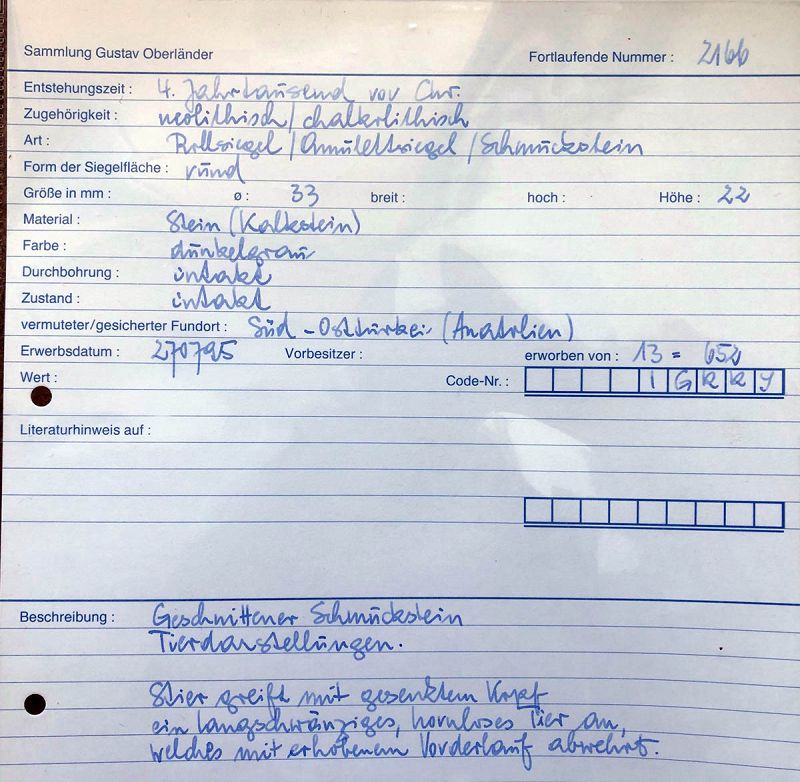 Sammlung Gustav Oberländer Fortlaufende Nummer : 2166
Entstehungszeit : 4. Jahrtausend vor Chr.
Zugehörigkeit : neolithisch/chalkolithisch
Art : Rollsiegel/Amulettsiegel/Schmuckstein
Form der Siegelfläche : rund
Größe in mm : ø : 33 breit : hoch : Höhe : 22
Material : Stein (Kalkstein)
Farbe : dunkelgrau
Durchbohrung : intakt
Zustand : intakt
vermuteter/gesicherter Fundort : Süd-Osttürkei (Anatolien)
Erwerbsdatum : 270795 Vorbesitzer : erworben von : 13 = 652
Wert : Code-Nr. : I G K K Y
Literaturhinweis auf :
Beschreibung : Geschnittener Schmuckstein
Tierdarstellungen.
Stier greift mit gesenktem Kopf
ein langschwänziges, hornloses Tier an,
welches mit erhobenem Vorderlauf abwehrt.